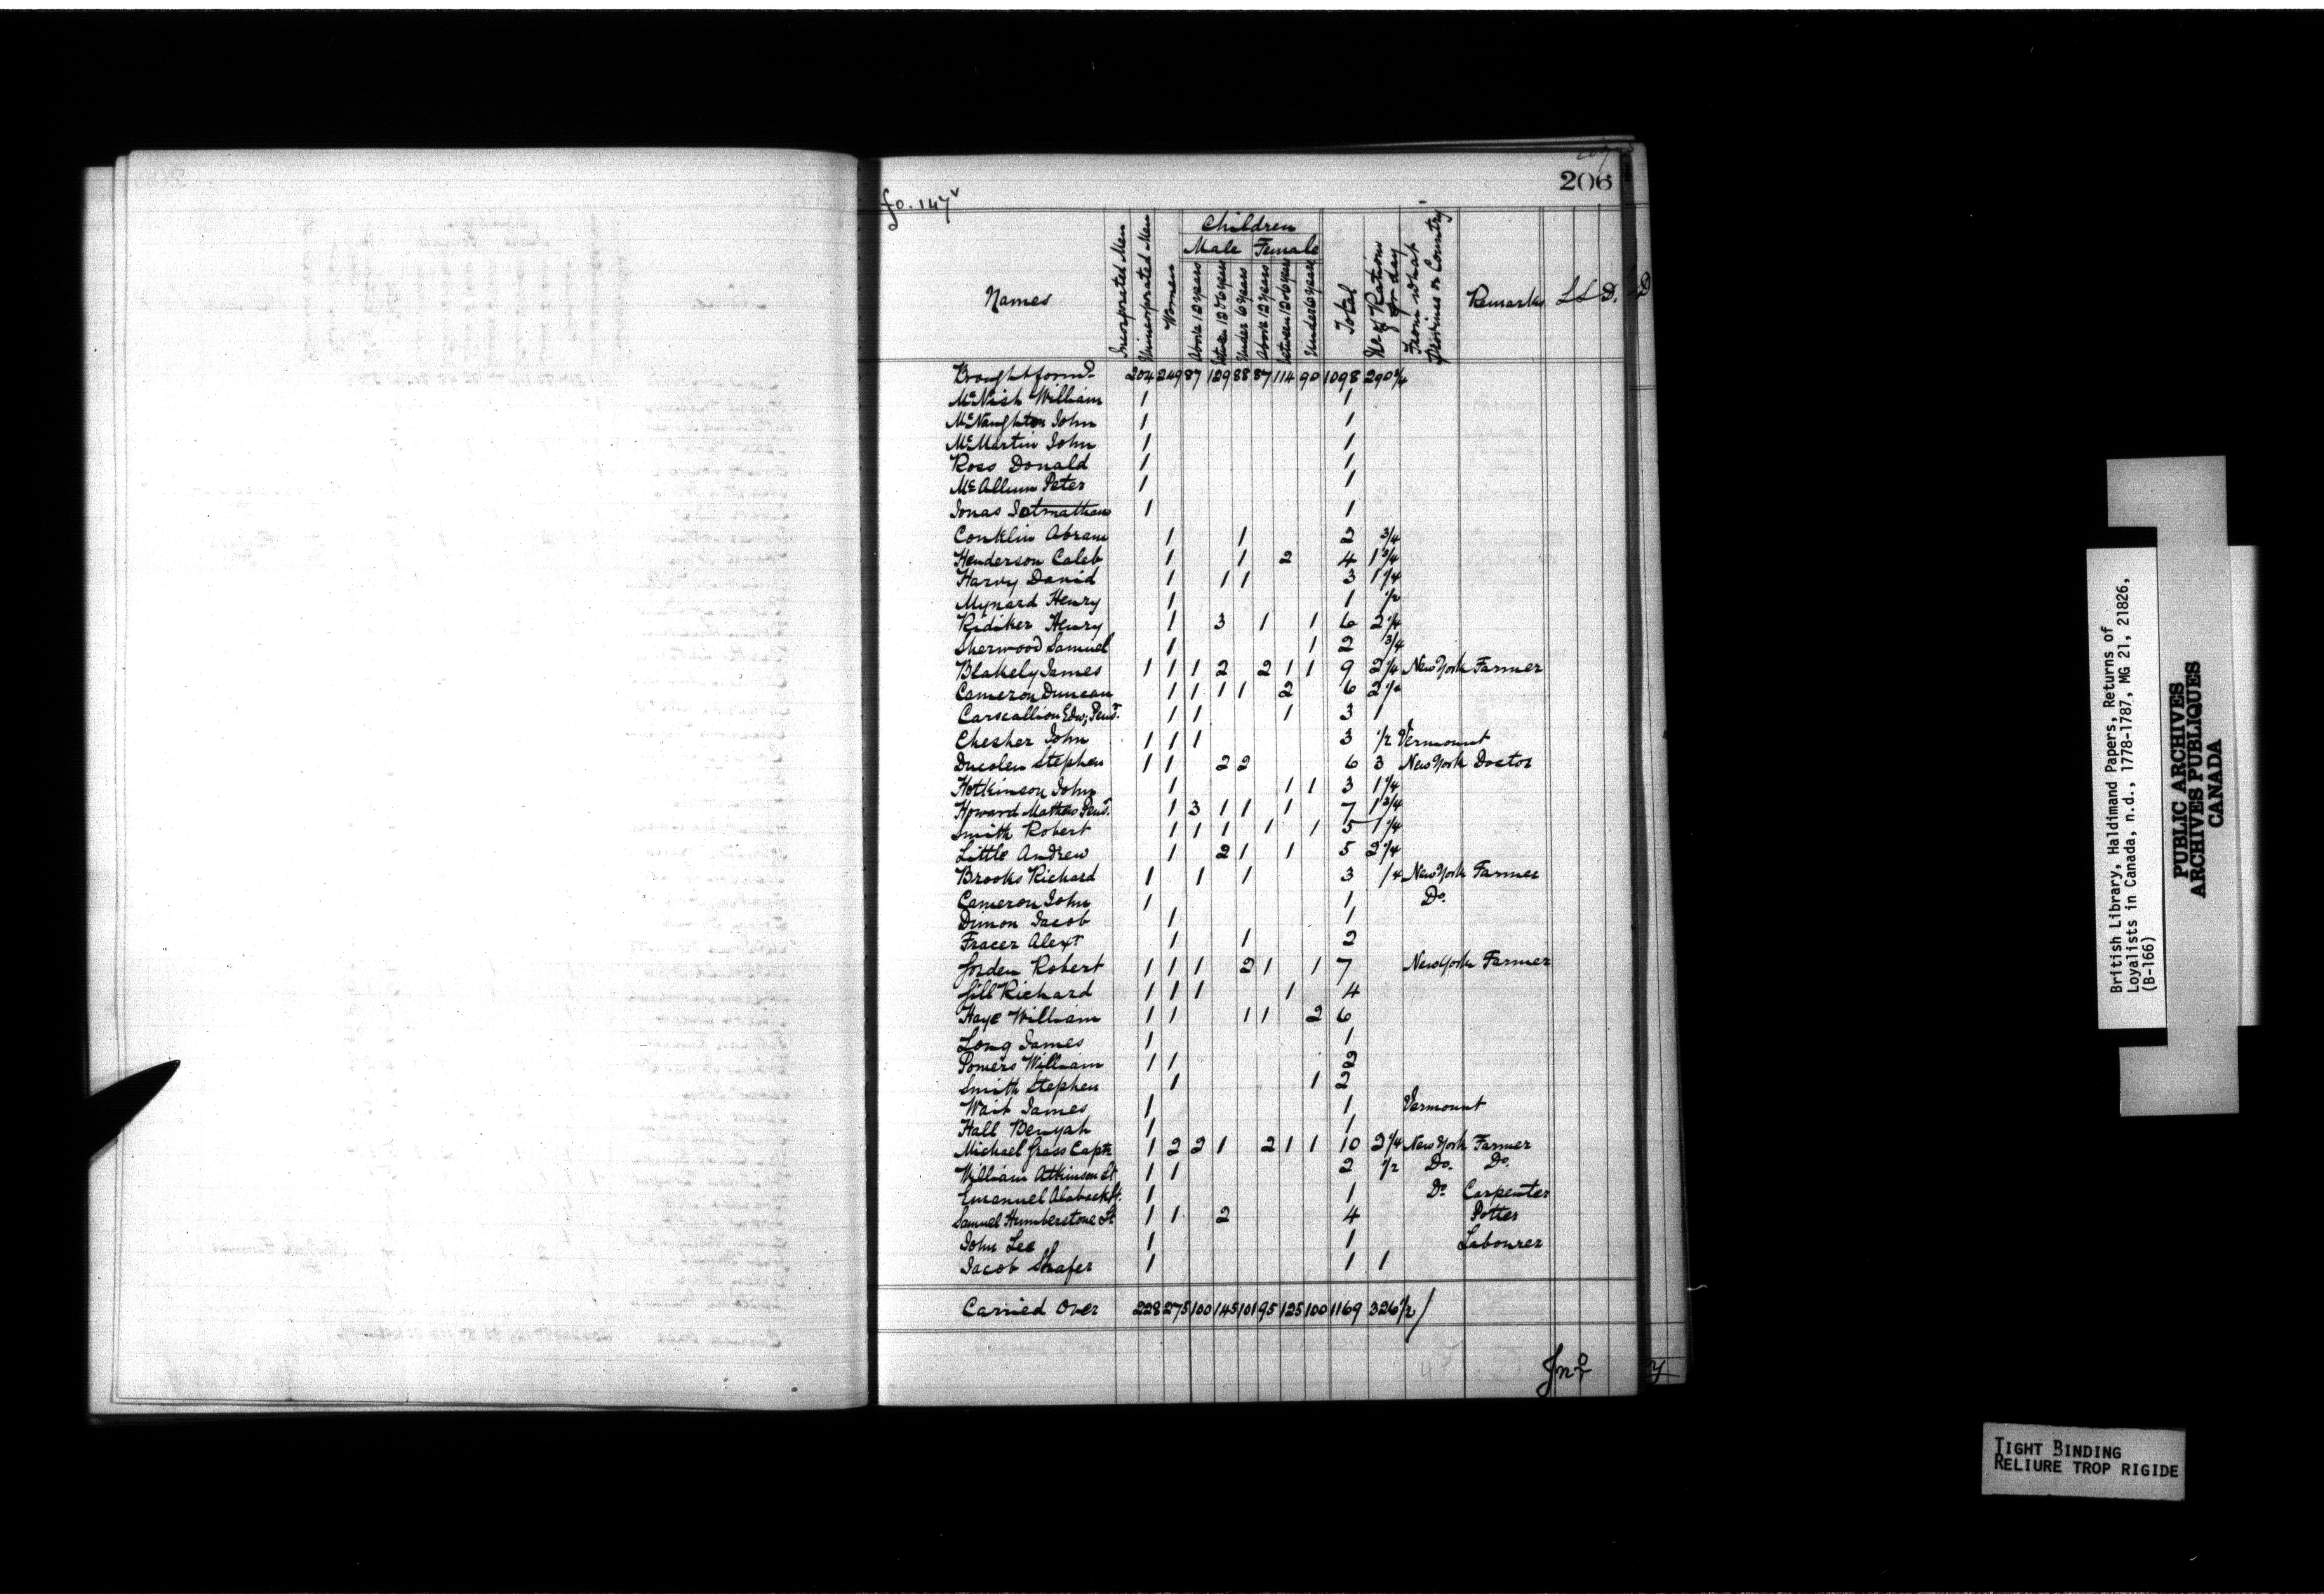 206
fo. 147v
Names
Incorporated Men
Unincorporated Men
Women
Children
Male Female
Above 12 years
between 12 & 6 years
Under 6 years
Above 12 years
between 12 & 6 years
Under 6 years
Total
No of Rations pr day
From what Province or Country
Remarks
L S D.
Brought forwd 204 249 87 129 88 87 114 90 1098 290 3/4
McNish William 1 1
McNaughton John 1 1
McMartin John 1 1
Ross Donald 1 1
McAllum Peter 1 1
Jonas 1 1
Conklin Abram 1 1 2 3/4
Henderson Caleb 1 1 2 4 1 3/4
Harvy David 1 1 1 3 1 1/4
Mynard Henry 1 1 1/2
Ridiker Henry 1 3 1 1 6 2 1/4
Sherwood Samuel 1 1 2 3/4
Blakely James 1 1 1 2 2 1 1 9 2 1/4 New York Farmer
Cameron Duncan 1 1 1 1 2 6 2
Carscallion Edw; Pens. 1 1 1 3 1
Chesher John 1 1 1 3 1/2 Vermount
Ducolen Stephen 1 1 2 2 6 3 New York Doctor
Hotkinson John 1 1 1 3 1 1/4
Howard Mathew Pens. 1 3 1 1 1 7 1 3/4
Smith Robert 1 1 1 1 1 5 1 1/4
Little Andrew 1 2 1 1 5 2 1/4
Brooks Richard 1 1 1 3 1/4 New York Farmer
Cameron John 1 1 Do.
Dimon Jacob 1 1
Fracer Alexr 1 1 2
Jorden Robert 1 1 1 2 1 1 7 New York Farmer
Jill Richard 1 1 1 1 4
Haye William 1 1 1 1 2 6
Long James 1 1
Pomers William 1 1 2
Smith Stephen 1 1 2
Wait James 1 1 Vermount
Hall Benyah 1 1
Michael Grass Captn 1 2 2 1 2 1 1 10 2 1/4 New York Farmer
William Atkinson Lt 1 1 2 1/2 Do. Do.
Emanuel 1 1 Do Carpenter
Samuel Humberstone Lt 1 1 2 4 Potter
John Lee 1 1 Labourer
Jacob Shafer 1 1 1
Carried Over 228 275 100 145 101 95 125 100 1169 326 1/2
Jno
British Library, Haldimand Papers, Returns of
Loyalists in Canada, n.d., 1778-1787, MG 21, 21826,
(B-166)
PUBLIC ARCHIVES
ARCHIVES PUBLIQUES
CANADA
TIGHT BINDING
RELIURE TROP RIGIDE